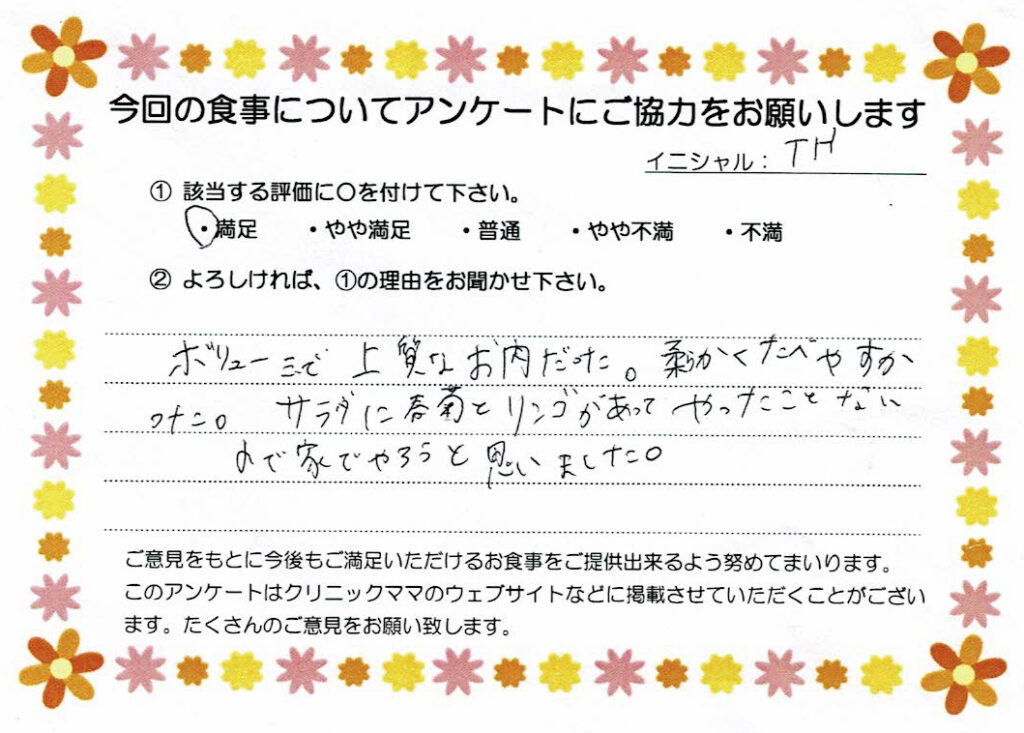 今回の食事についてアンケートにご協力をお願いします
イニシャル： TH
① 該当する評価に○を付けて下さい。
・満足 ・やや満足 ・普通 ・やや不満 ・不満
② よろしければ、①の理由をお聞かせ下さい。
ボリューミで 上質なお肉だった。柔らかくたべやすか
った。 サラダに春菊とリンゴがあって やったことない
ので家でやろうと思いました。
ご意見をもとに今後もご満足いただけるお食事をご提供出来るよう努めてまいります。
このアンケートはクリニックママのウェブサイトなどに掲載させていただくことがござい
ます。たくさんのご意見をお願い致します。